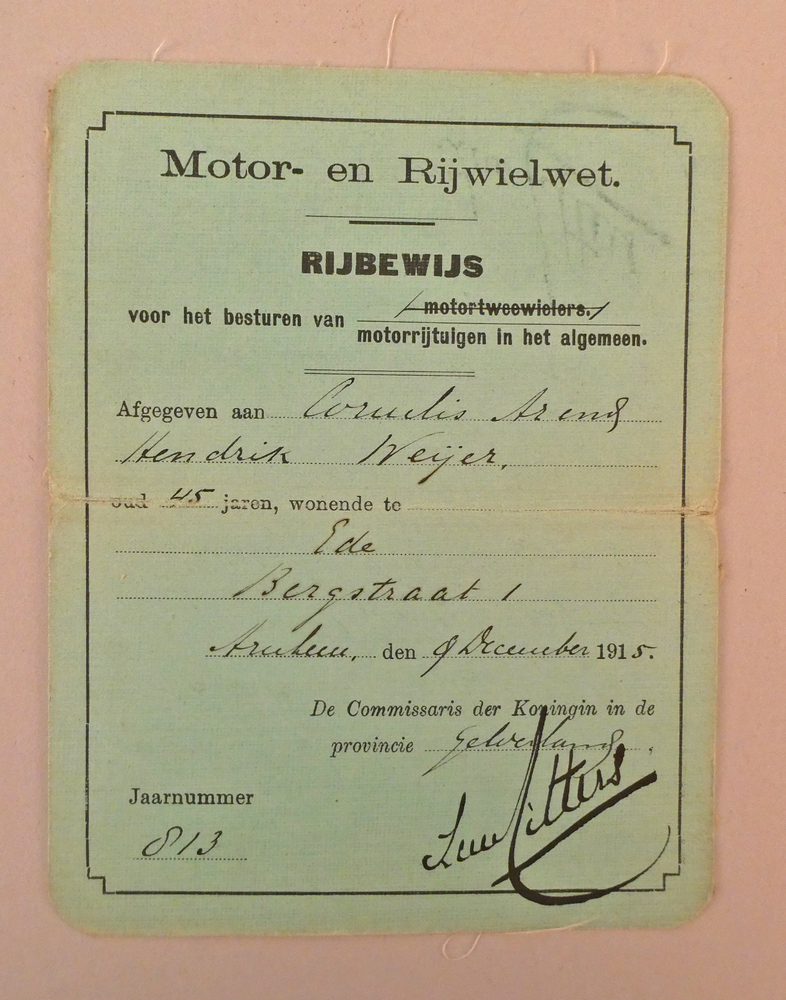 Motor- en Rijwielwet.
RIJBEWIJS
motortweewielers.
voor het besturen van
motorrijtuigen in het algemeen.
Afgegeven aan Cornelis Arend
Hendrik Weijer,
oud 45 jaren, wonende te
Ede
Bergstraat 1
Arnhem, den 9 December 1915.
De Commissaris der Koningin in de
provincie Gelderland.
Jaarnummer
813